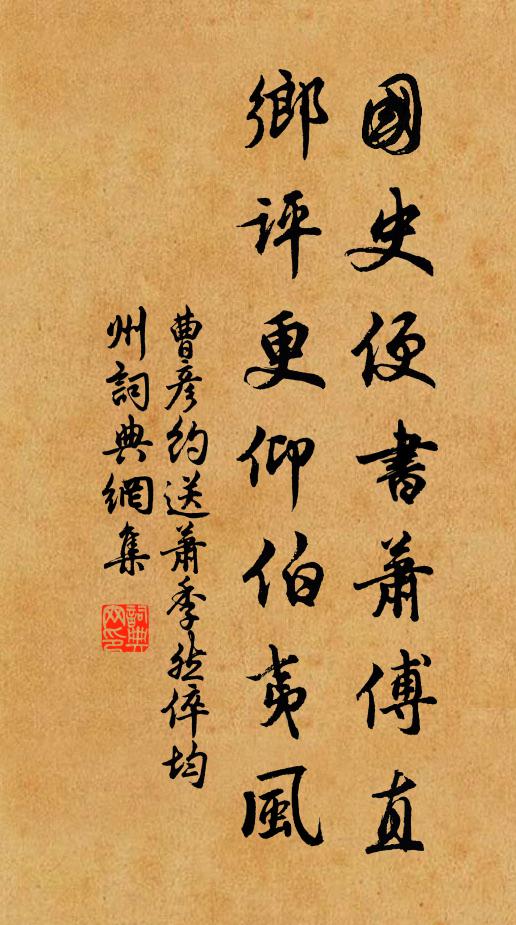 國史便書蕭傅直
鄉評更仰伯夷風
曹彥約送蕭季然倅均
州詞典網集
詞典網印